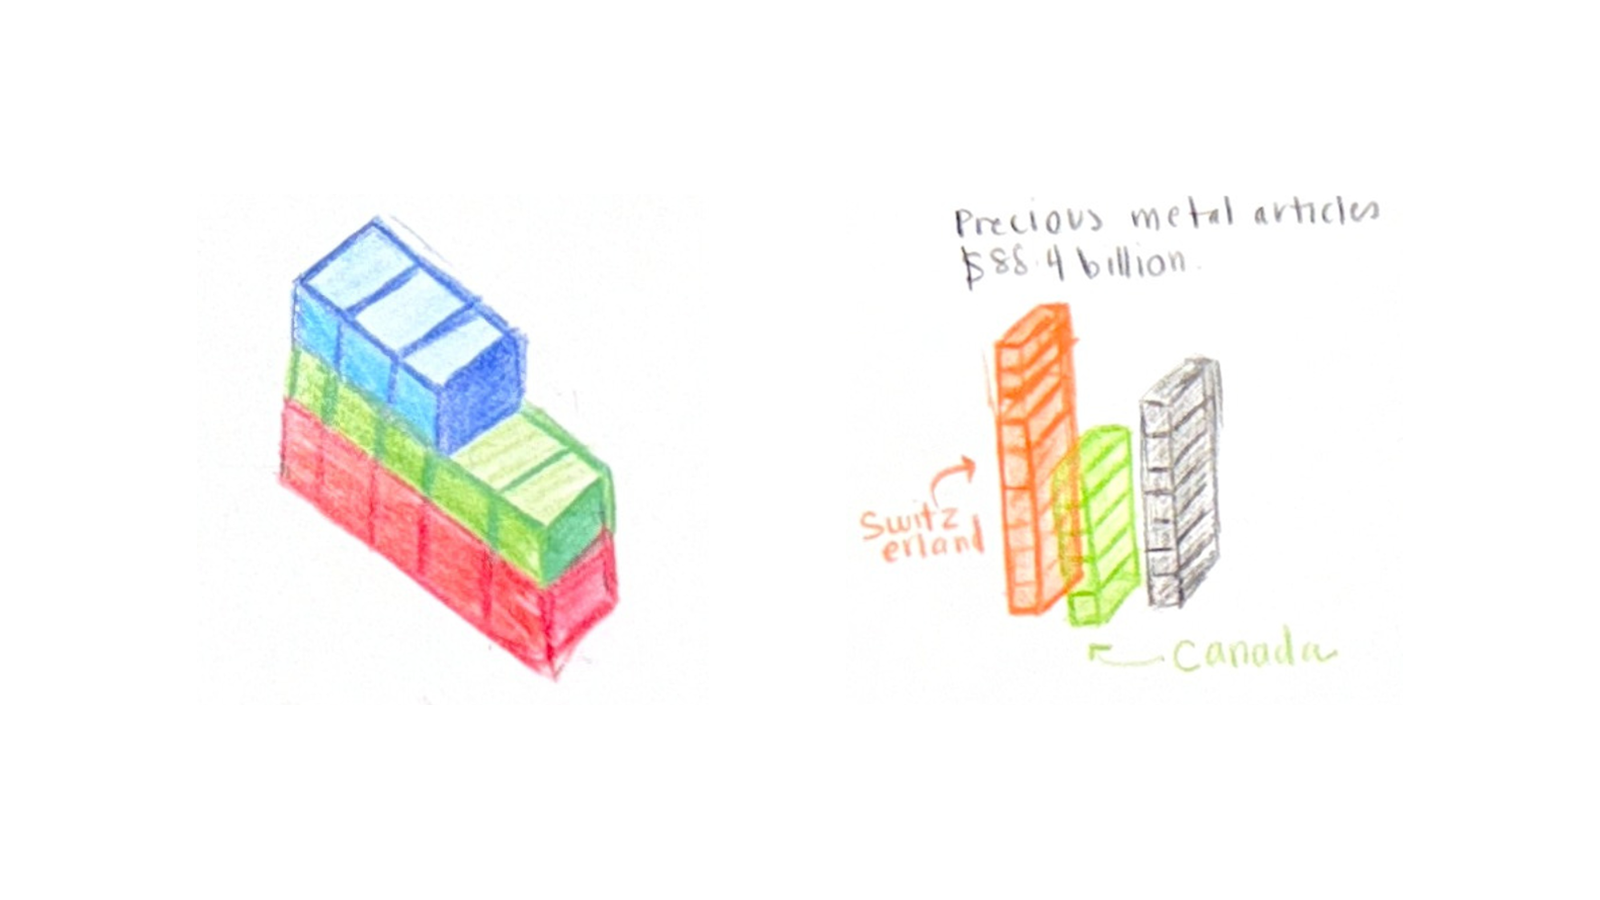 Precious metal articles
$88.4 billion.
Switz
erland
Canada